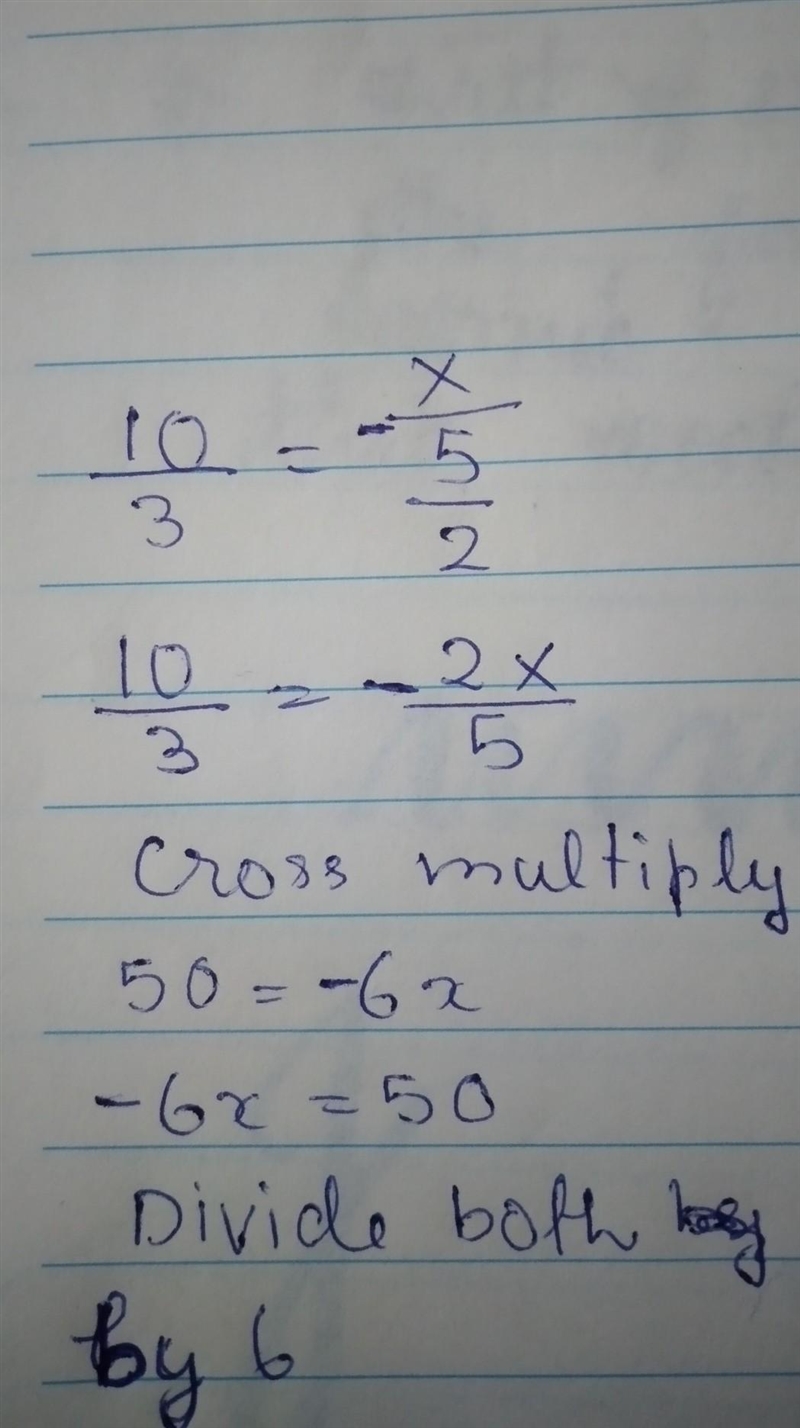 10/3 = -x/(5/2)
10/3 = -2x/5
Cross multiply
50 = -6x
-6x = 50
Divide both
by 6